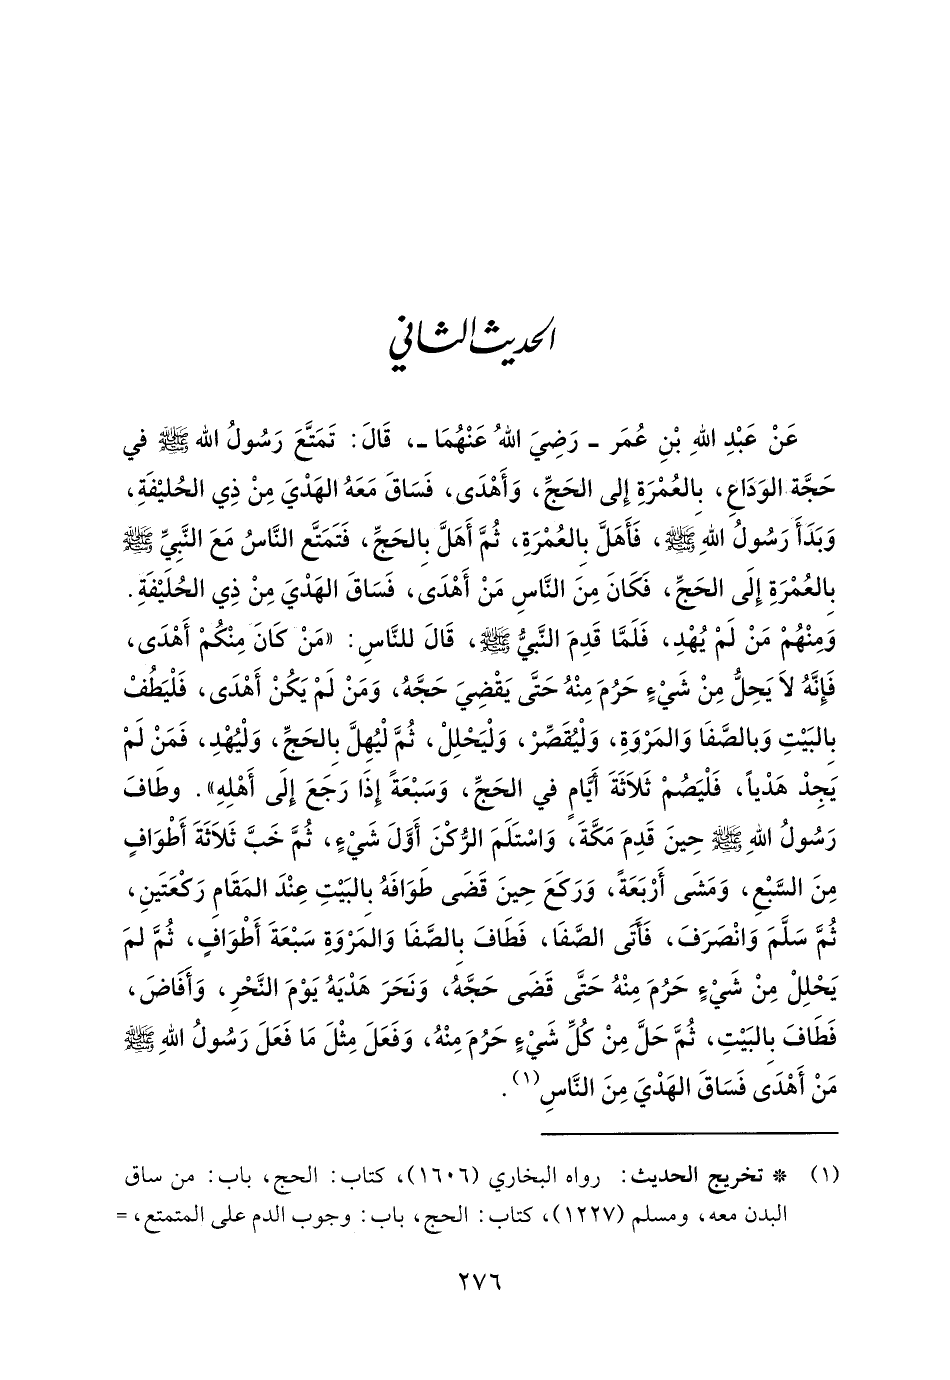 الحديث الثاني
عَنْ عَبْدِ اللهِ بْنِ عُمَر ـ رَضِيَ اللهُ عَنْهُمَا ـ، قَالَ: تَمَتَّعَ رَسُولُ الله ﷺ في
حَجَّة الوَدَاعِ، بِالعُمْرَةِ إلى الحَجِّ، وَأَهْدَى، فَسَاقَ مَعَهُ الهَدْيَ مِنْ ذِي الحُلَيْفَةِ،
وَبَدَأَ رَسُولُ اللهِ ﷺ، فَأَهَلَّ بِالعُمْرَةِ، ثُمَّ أَهَلَّ بِالحَجِّ، فَتَمَتَّع النَّاسُ مَعَ النَّبِيِّ ﷺ
بِالعُمْرَةِ إِلَى الحَجِّ، فَكَانَ مِنَ النَّاسِ مَنْ أَهْدَى، فَسَاقَ الهَدْيَ مِنْ ذِي الحُلَيْفَةِ.
وَمِنْهُمْ مَنْ لَمْ يُهْدِ، فَلَمَّا قَدِمَ النَّبِيُّ ﷺ، قَالَ للنَّاسِ: «مَنْ كَانَ مِنْكُمْ أَهْدَى،
فَإِنَّهُ لاَ يَحِلُّ مِنْ شَيْءٍ حَرُمَ مِنْهُ حَتَّى يَقْضِيَ حَجَّهُ، وَمَنْ لَمْ يَكُنْ أَهْدَى، فَلْيَطُفْ
بِالبَيْتِ وَبالصَّفَا وَالمَرْوَةِ، وَلْيُقَصِّرْ، وَلْيَحْلِلْ، ثُمَّ لْيُهِلَّ بِالحَجِّ، وَلْيُهْدِ، فَمَنْ لَمْ
يَجِدْ هَدْياً، فَلْيَصُمْ ثَلاَثَةَ أَيَّامٍ في الحَجِّ، وَسَبْعَةً إِذَا رَجَعَ إِلَى أَهْلِهِ». وطَافَ
رَسُولُ اللهِ ﷺ حِينَ قَدِمَ مَكَّةَ، وَاسْتَلَمَ الرُّكْنَ أَوَّلَ شَيْءٍ، ثُمَّ خَبَّ ثَلاَثَةَ أَطْوَافٍ
مِنَ السَّبْعِ، وَمَشَى أَرْبَعَةً، وَرَكَعَ حِينَ قَضَى طَوَافَهُ بِالبَيْتِ عِنْدَ المَقَامِ رَكْعَتَينِ،
ثُمَّ سَلَّمَ وَانْصَرَفَ، فَأَتَى الصَّفَا، فَطَافَ بِالصَّفَا وَالمَرْوَةِ سَبْعَةَ أَطْوَافٍ، ثُمَّ لمَ
يَحْلِلْ مِنْ شَيْءٍ حَرُمَ مِنْهُ حَتَّى قَضَى حَجَّهُ، وَنَحَرَ هَدْيَهُ يَوْمَ النَّحْرِ، وَأَفَاضَ،
فَطَافَ بِالبَيْتِ، ثُمَّ حَلَّ مِنْ كُلِّ شَيْءٍ حَرُمَ مِنْهُ، وَفَعَلَ مِثْلَ مَا فَعَلَ رَسُولُ اللهِ ﷺ
مَنْ أَهْدَى فَسَاقَ الهَدْيَ مِنَ النَّاسِ(١).
(١) * تخريج الحديث: رواه البخاري (١٦٠٦)، كتاب: الحج، باب: من ساق
البدن معه، ومسلم (١٢٢٧)، كتاب: الحج، باب: وجوب الدم على المتمتع، =
٢٧٦